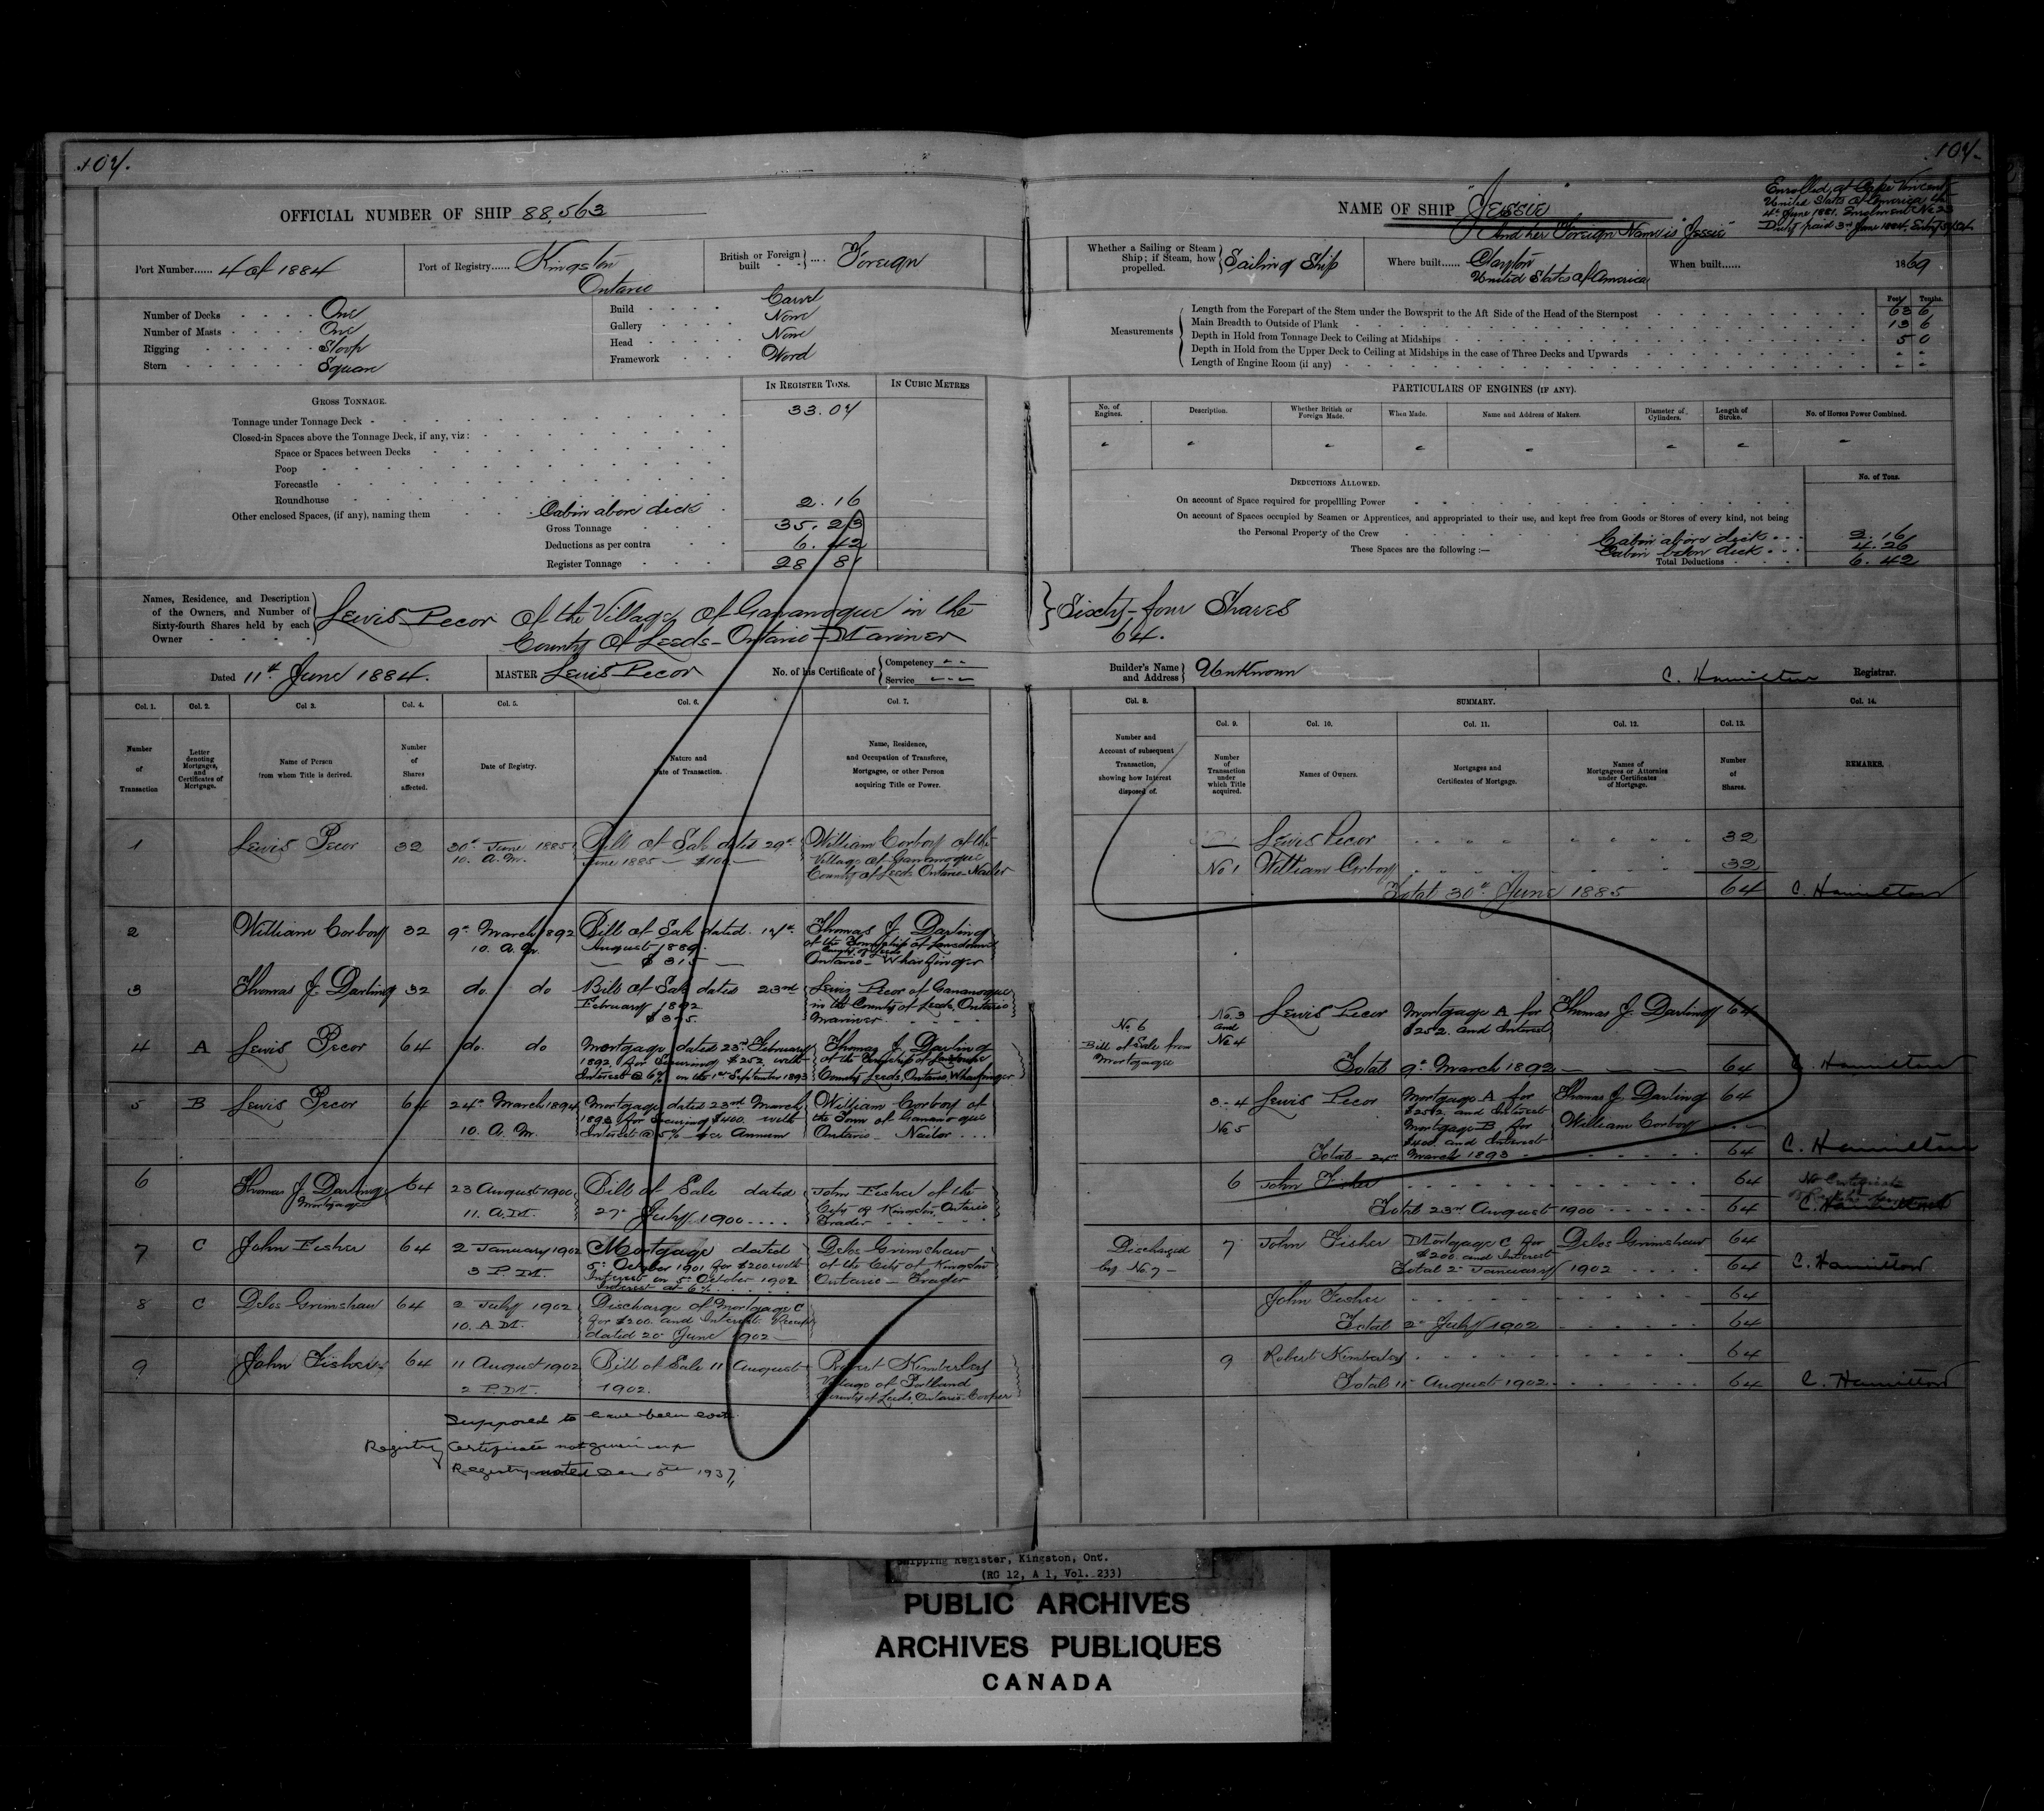 104.
104.
OFFICIAL NUMBER OF SHIP 88,563
NAME OF SHIP "Jessie"
And her Foreign Name is "Jessie"
Enrolled at Cape Vincent
United States of America the
4th June 1881. Enrolment No 23
Duty paid 3rd June 1884.
Port Number...... 4 of 1884
Port of Registry...... Kingston
Ontario
British or Foreign built .... Foreign
Whether a Sailing or Steam Ship; if Steam, how propelled. Sailing Ship
Where built...... Clayton
United States of America
When built...... 1869
Number of Decks One
Number of Masts One
Rigging Sloop
Stern Square
Build Carvel
Gallery None
Head None
Framework Wood
Measurements
Feet. Tenths.
Length from the Forepart of the Stem under the Bowsprit to the Aft Side of the Head of the Sternpost 63 6
Main Breadth to Outside of Plank 13 6
Depth in Hold from Tonnage Deck to Ceiling at Midships 5 0
Depth in Hold from the Upper Deck to Ceiling at Midships in the case of Three Decks and Upwards - -
Length of Engine Room (if any) - -
IN REGISTER TONS. IN CUBIC METRES
GROSS TONNAGE.
Tonnage under Tonnage Deck 33.07
Closed-in Spaces above the Tonnage Deck, if any, viz:
Space or Spaces between Decks
Poop
Forecastle
Roundhouse
Other enclosed Spaces, (if any), naming them Cabin above deck 2.16
Gross Tonnage 35.23
Deductions as per contra 6.42
Register Tonnage 28 81
PARTICULARS OF ENGINES (IF ANY).
No. of Engines. Description. Whether British or Foreign Made. When Made. Name and Address of Makers. Diameter of Cylinders. Length of Stroke. No. of Horses Power Combined.
DEDUCTIONS ALLOWED. No. of Tons.
On account of Space required for propellling Power
On account of Spaces occupied by Seamen or Apprentices, and appropriated to their use, and kept free from Goods or Stores of every kind, not being
the Personal Property of the Crew
These Spaces are the following :—
Cabin above deck 2.16
Cabin below deck 4.26
Total Deductions 6.42
Names, Residence, and Description of the Owners, and Number of Sixty-fourth Shares held by each Owner
Lewis Pecor of the Village of Gananoque in the
County of Leeds - Ontario - Mariner
Sixty-four Shares
64.
Dated 11th June 1884.
MASTER Lewis Pecor
No. of his Certificate of Competency Service
Builder's Name and Address Unknown
C. Hamilton Registrar.
Col. 1. Col. 2. Col 3. Col. 4. Col. 5. Col. 6. Col. 7.
Number of Transaction
Letter denoting Mortgages, and Certificates of Mortgage.
Name of Person from whom Title is derived.
Number of Shares affected.
Date of Registry.
Nature and Date of Transaction.
Name, Residence, and Occupation of Transferee, Mortgagee, or other Person acquiring Title or Power.
1 Lewis Pecor 32 30th June 1885 10. A.M. Bill of Sale dated 29th June 1885 — $100.— William Corboy of the Village of Gananoque County of Leeds Ontario - Nailer
2 William Corboy 32 9th March 1892 10. A.M. Bill of Sale dated 14th August 1889. — $315 — Thomas J. Darling of the Township of Lansdowne County of Leeds Ontario - Wharfinger
3 Thomas J. Darling 32 do. do Bill of Sale dated 23rd February 1892 $375. Lewis Pecor of Gananoque in the County of Leeds, Ontario Mariner
4 A Lewis Pecor 64 do. do Mortgage dated 23rd February 1892 for Securing $252 with Interest @ 6% on the 1st September 1893 Thomas J. Darling of the Township of Lansdowne County Leeds, Ontario, Wharfinger
5 B Lewis Pecor 64 24th March 1894 10. A.M. Mortgage dated 23rd March 1893 for Securing $400. with Interest @ 5% per Annum William Corboy of the Town of Gananoque Ontario - Nailor
6 Thomas J. Darling Mortgagee 64 23 August 1900 11. A.M. Bill of Sale dated 27th July 1900 .... John Fisher of the City of Kingston, Ontario Trader
7 C John Fisher 64 2 January 1902 3 P.M. Mortgage dated 5th October 1901 for $200 with Interest on 5th October 1902 Interest at 6% Delos Grimshaw of the City of Kingston Ontario - Trader
8 C Delos Grimshaw 64 2 July 1902 10. A.M. Discharge of Mortgage C for $200. and Interest. Receipt dated 20 June 1902 —
9 John Fisher 64 11 August 1902 2 P.M. Bill of Sale 11 August 1902. Robert Kimberley Village of Portland County of Leeds, Ontario. Cooper
Supposed to have been lost.
Registry Certificate not given up
Registry closed 5th 1937,
Col. 8. SUMMARY. Col. 14.
Col. 9. Col. 10. Col. 11. Col. 12. Col. 13.
Number and Account of subsequent Transaction, showing how Interest disposed of.
Number of Transaction under which Title acquired.
Names of Owners.
Mortgages and Certificates of Mortgage.
Names of Mortgagees or Attornies under Certificates of Mortgage.
Number of Shares.
REMARKS.
Lewis Pecor 32
No 1 William Corboy 32
Total 30th June 1885 64 C. Hamilton
No 6 Bill of Sale from Mortgagee
No. 3 and No 4 Lewis Pecor Mortgage A for $252. and Interest Thomas J. Darling 64
Total 9th March 1892 64 C. Hamilton
3-4 Lewis Pecor Mortgage A for $252. and Interest Thomas J. Darling 64
No 5 Mortgage B for $400. and Interest William Corboy
Total - 24th March 1893 64 C. Hamilton
6 John Fisher 64 No Certificate
Total 23rd August 1900 64 C. Hamilton
Discharged by No. 7 -
7 John Fisher Mortgage C for $200. and Interest Delos Grimshaw 64
Total 2nd January 1902 64 C. Hamilton
John Fisher 64
Total 2nd July 1902 64
9 Robert Kimberley 64
Total 11th August 1902 64 C. Hamilton
Shipping Register, Kingston, Ont.
(RG 12, A 1, Vol. 233)
PUBLIC ARCHIVES
ARCHIVES PUBLIQUES
CANADA